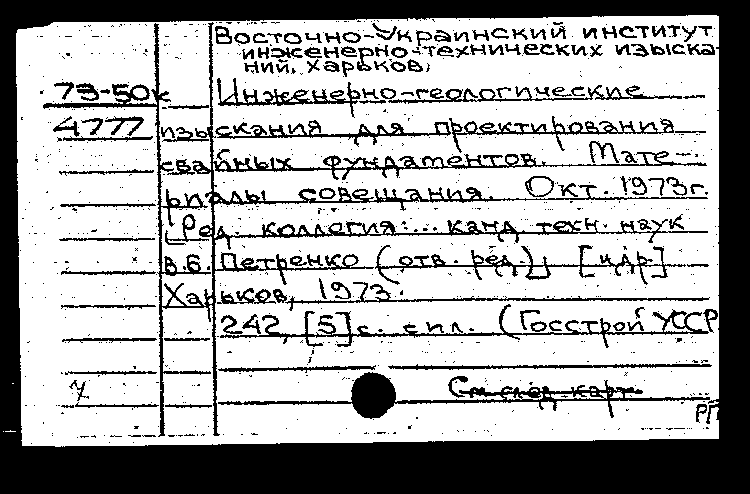 Восточно-Украинский институт
инженерно-технических изыска-
ний, Харьков,
73-50к Инженерно-геологические
4777 изыскания для проектирования
свайных фундаментов. Мате-
риалы совещания. Окт. 1973г.
[Ред. коллегия:... канд техн. наук
В.Б. Петренко (отв. ред.)] [и др.]
Харьков, 1973.
242, [5] с. с ил. (Госстрой УССР
См след карт.